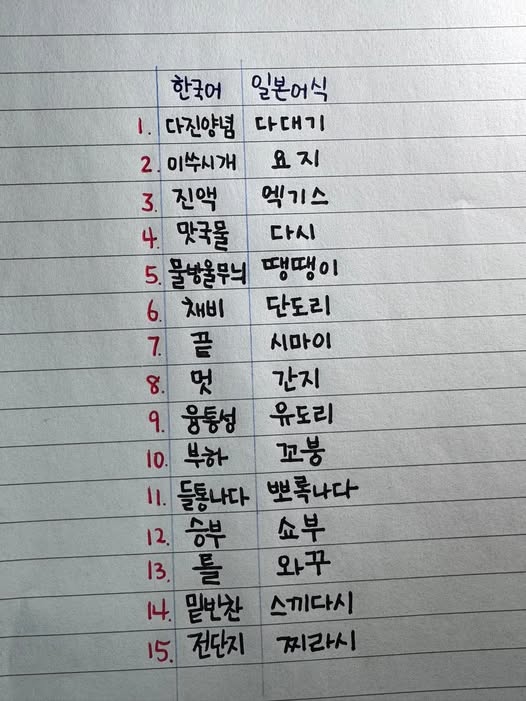 한국어 일본어식
1. 다진양념 다대기
2. 이쑤시개 요지
3. 진액 엑기스
4. 맛국물 다시
5. 물방울무늬 땡땡이
6. 채비 단도리
7. 끝 시마이
8. 멋 간지
9. 융통성 유도리
10. 부하 꼬붕
11. 들통나다 뽀록나다
12. 승부 쇼부
13. 틀 와꾸
14. 밑반찬 스끼다시
15. 전단지 찌라시